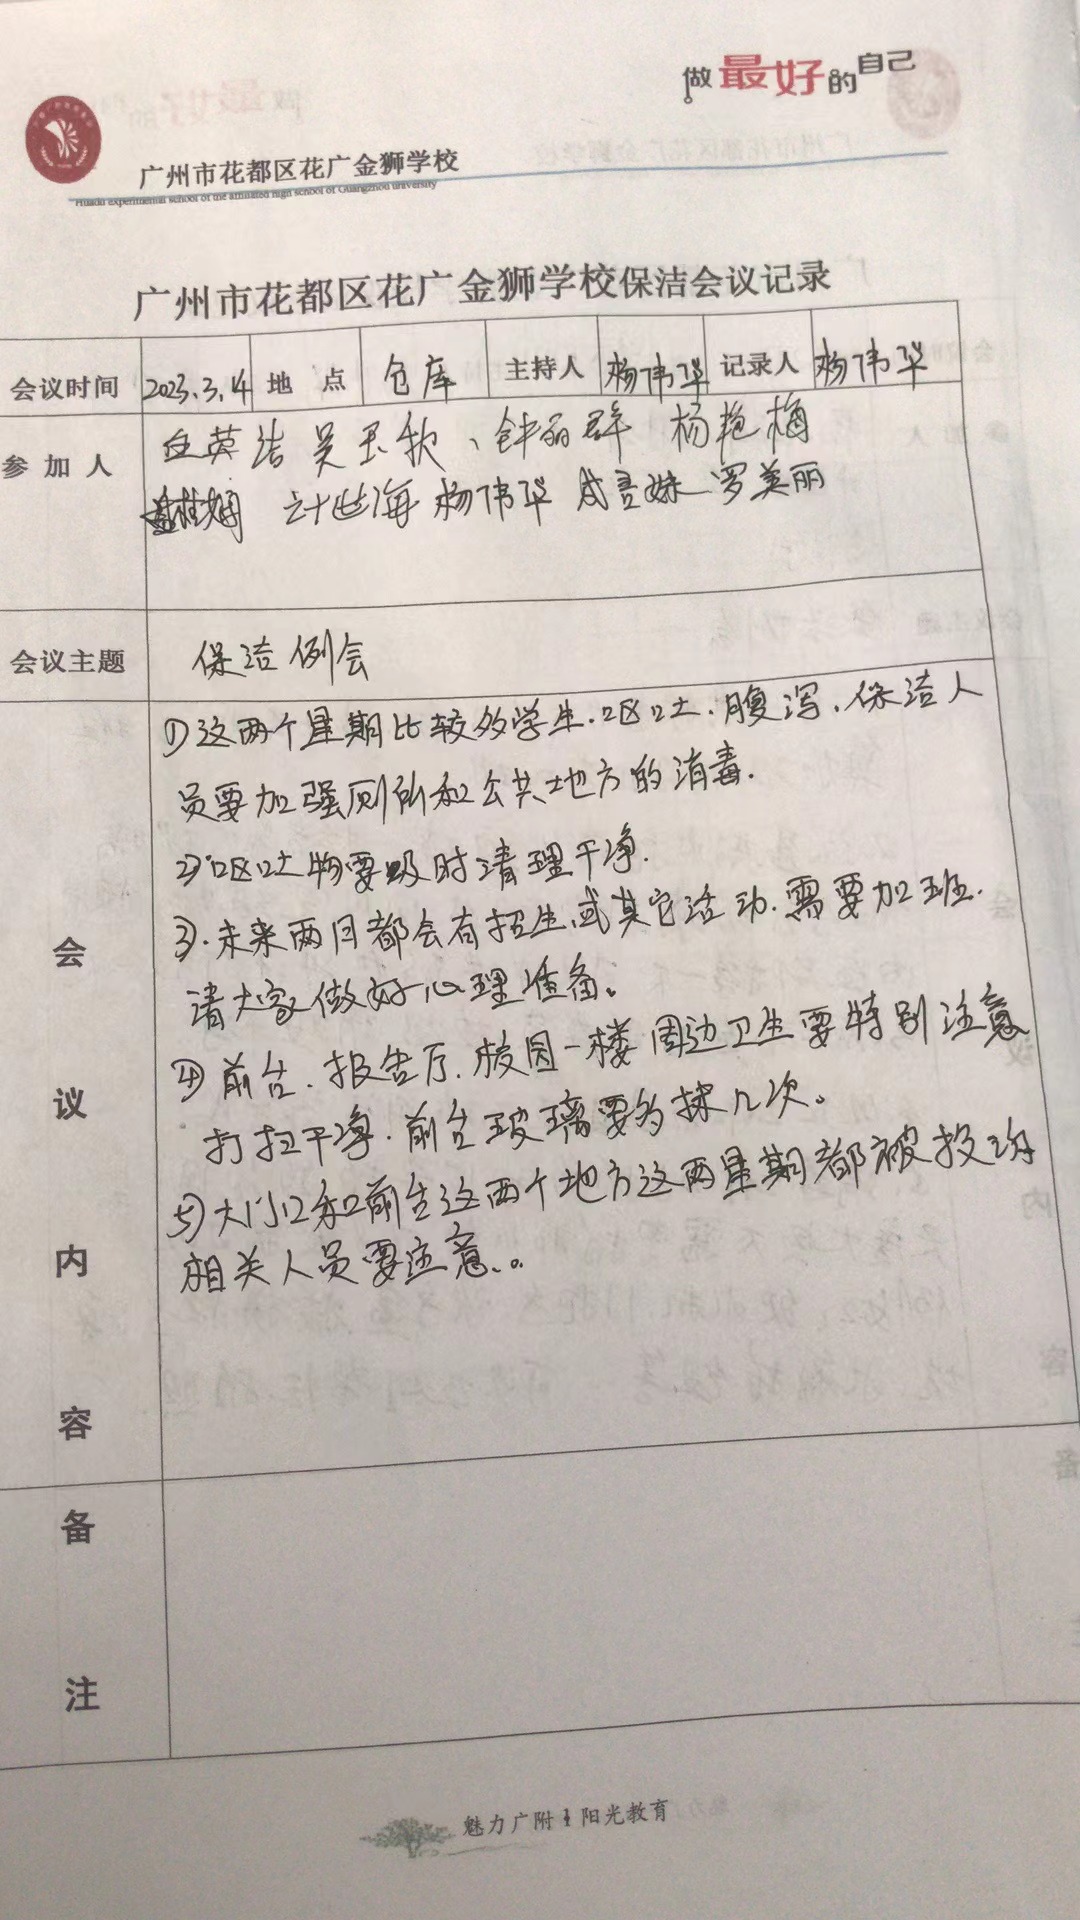 做最好的自己
广州市花都区花广金狮学校
Huadu experimental school of the affiliated high school of Guangzhou university
广州市花都区花广金狮学校保洁会议记录
会议时间 2023.3.14 地点 仓库 主持人 杨伟华 记录人 杨伟华
参加人 英洁 吴玉秋、钟丽群 杨艳梅
计世海 杨伟华 成 妹 罗美丽
会议主题 保洁例会
会议内容
①这两个星期比较多学生.呕吐.腹泻.保洁人
员要加强厕所和公共地方的消毒.
2)呕吐物要及时清理干净.
3).未来两月都会有招生或其它活动.需要加班.
请大家做好心理准备。
④前台.报告厅.校园一楼周边卫生要特别注意
打扫干净.前台玻璃要多抹几次。
5)大门口和前台这两个地方这两星期都被投诉
相关人员要注意.。
备注
魅力广附 阳光教育